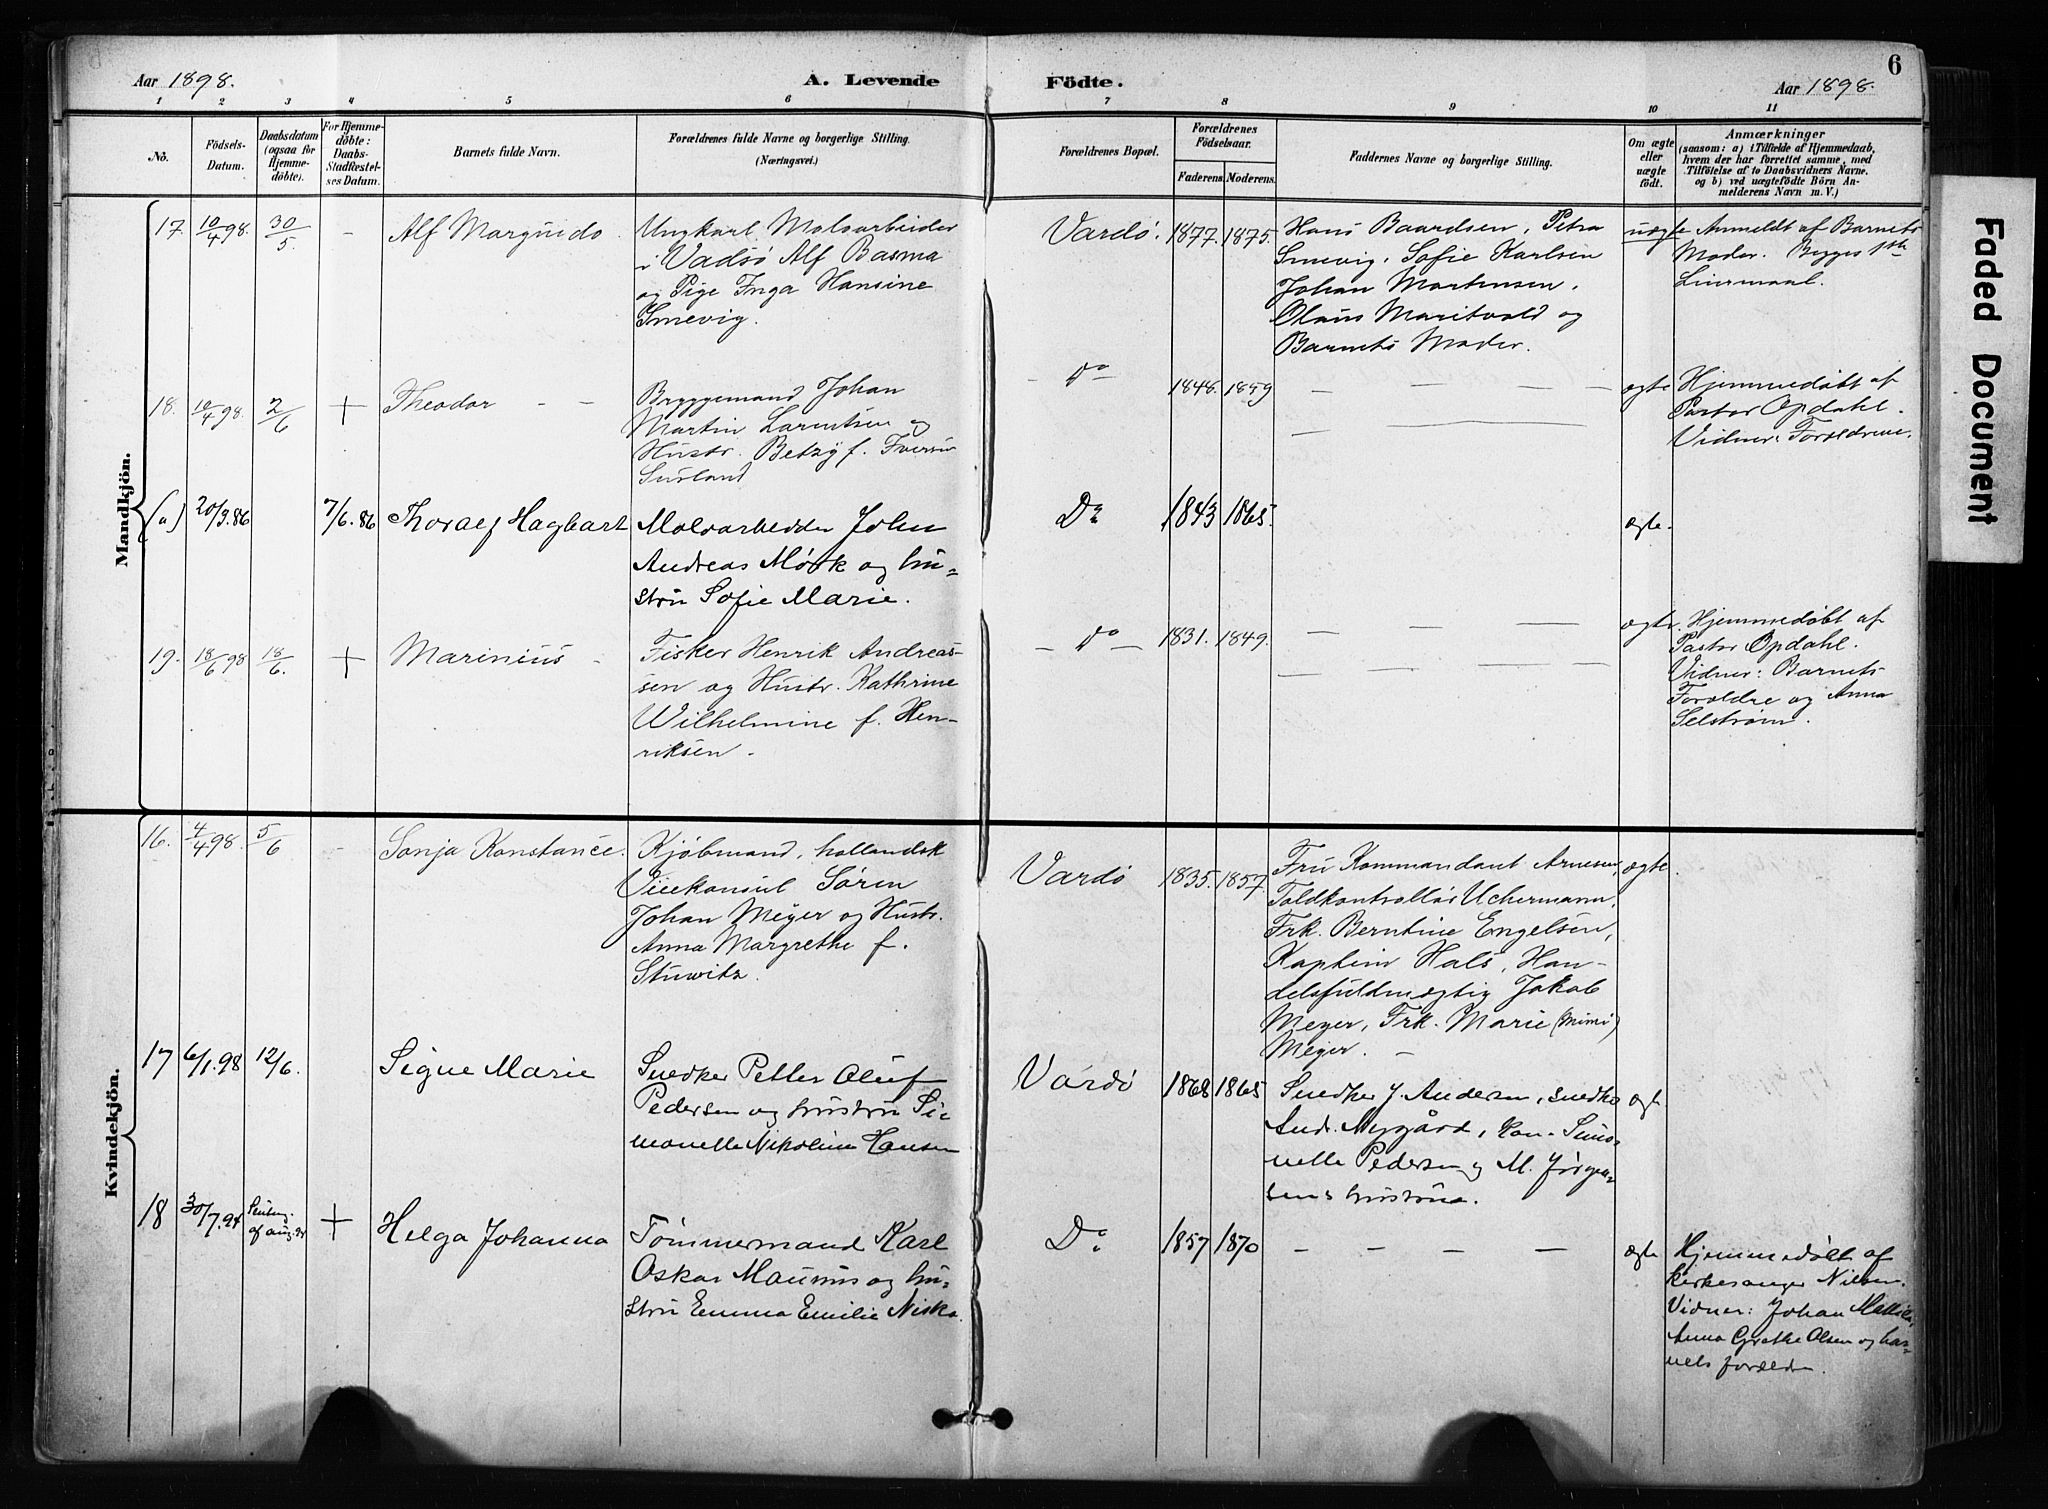 Aar 1898.
A. Levende
Födte.
Aar 1898.
6
1 2 3 4 5 6 7 8 9 10 11
No.
Födsels-
Datum.
Daabsdatum
(ogsaa for
Hjemme-
döbte).
For Hjemme-
döbte:
Daabs-
Stadfæstel-
ses Datum.
Barnets fulde Navn.
Forældrenes fulde Navne og borgerlige Stilling.
(Næringsvei.)
Forældrenes Bopæl.
Forældrenes
Födselsaar.
Faderens. Moderens.
Faddernes Navne og borgerlige Stilling.
Om ægte
eller
uægte
födt.
Anmærkninger
(saasom: a) i Tilfælde af Hjemmedaab,
hvem der har forrettet samme, med
Tilföielse af to Daabsvidners Navne.
og b) ved uægtefödte Börn An-
melderens Navn m. V.)
Faded Document
Mandkjön.
17. 10/4 98. 30/5 - Alf Marguido.
Ungkarl Moloarbeider
i Vadsø Alf Basma
og Pige Inga Hansine
Smevig.
Vardø. 1877. 1875.
Hans Baardsen, Petra
Smevig, Sofie Karlsen
Johan Martensen,
Olaus Maritvold og
Barnets Moder.
uægte
Anmeldt af Barnets
Moder. Bygges 1ste
Leiermaal.
18. 10/4 98. 2/6 + Theodor - -
Bryggemand Johan
Martin Larentsen og
Hustr. Betzy f. Iversen
Surland
- Do - 1848. 1859 - - - -
ægte
Hjemmedøbt af
Pastor Opdahl.
Vidner: Forældrene.
(a) 20/3.86 7/6.86 Thoralf Hagbart
Moloarbeider John
Andreas Mørk og hu=
stru Sofie Marie.
Do 1843 1865. ægte.
19. 18/6 98 18/6. + Marinius -
Fisker Henrik Andreas-
sen og Hustr. Kathrine
Wilhelmine f. Hen-
riksen -
- Do - 1831. 1849. - - - -
ægte.
Hjemmedøbt af
Pastor Opdahl.
Vidner: Barnets
Forældre og Anna
Selstrøm.
Kvindekjön.
16. 4/4 98. 5/6 - Sonja Konstance.
Kjøbmand, hollandsk
Vicekonsul Søren
Johan Meyer og Hustr.
Anna Margrethe f.
Stuwitz
Vardø 1835. 1857.
Fru Kommandant Arnesen,
Toldkontrollør Uchermann,
Frk. Berntine Engelsen,
Kaptein Hals, Han-
delsfuldmægtig Jakob
Meyer, Frk. Marie (Mimi)
Meyer. -
ægte.
17 6/1.98 12/6. Signe Marie
Snedker Petter Oluf
Pedersen og hustru Si-
monelle Nikoline Hansen
Vardø 1868 1865
Snedker J. Andersen, snedker
And. Nygård, kon. Simo-
nelle Pedersen og M. Jørgen-
sens hustru.
ægte
18 30/7.94 + Helga Johanna
Tømmermand Karl
Oskar Maunus og hu=
stru Emma Emilie Niska.
Do 1857 1870 - - - -
ægte
Hjemmedøbt af
kirkesanger Nilsen.
Vidner: Johan
Anna Grethe Olsen og bar-
nets forældre.